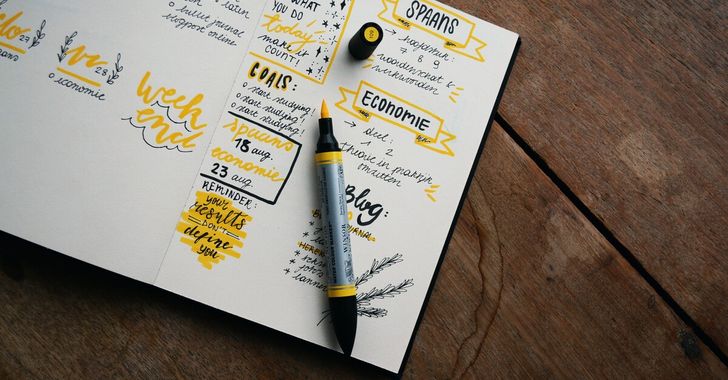 vr 28
o economie
week
end
o bullet journal
blogpost online
WHAT
YOU DO
today
make it
COUNT!
GOALS:
o start studying!
o start studying!
o start studying!
spaans
18 aug.
economie
23 aug.
REMINDER:
your
results
DON'T
define
YOU
SPAANS
→ hoofdstuk:
7 8 9
woordenschat &
werkwoorden
ECONOMIE
→ deel:
1 2
theorie in praktijk
omzetten
Blog:
WINSOR